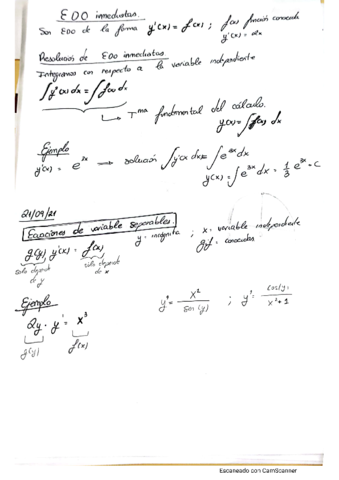 EDO inmediatas
Son EDO de la forma y'(x) = f(x) ; f(x) función conocida
y'(x) = 2x
Resolución de EDO inmediatas
Integramos con respecto a la variable independiente
∫y'(x) dx = ∫f(x) dx
↳ Tma fundamental del cálculo.
y(x) = ∫f(x) dx
Ejemplo
y'(x) = e^3x → solución ∫y'(x) dx = ∫e^3x dx
y(x) = ∫e^3x dx = 1/3 e^3x + C
21/09/21
Ecuaciones de variable separables.
y = incógnita ; x = variable independiente
g(y) y'(x) = f(x)
g,f = conocidas
solo depende de y
solo depende de x
Ejemplo
2y · y' = x^3
g(y) f(x)
y' = x^2 / sen(y) ; y' = cos(y) / x^2+1
Escaneado con CamScanner